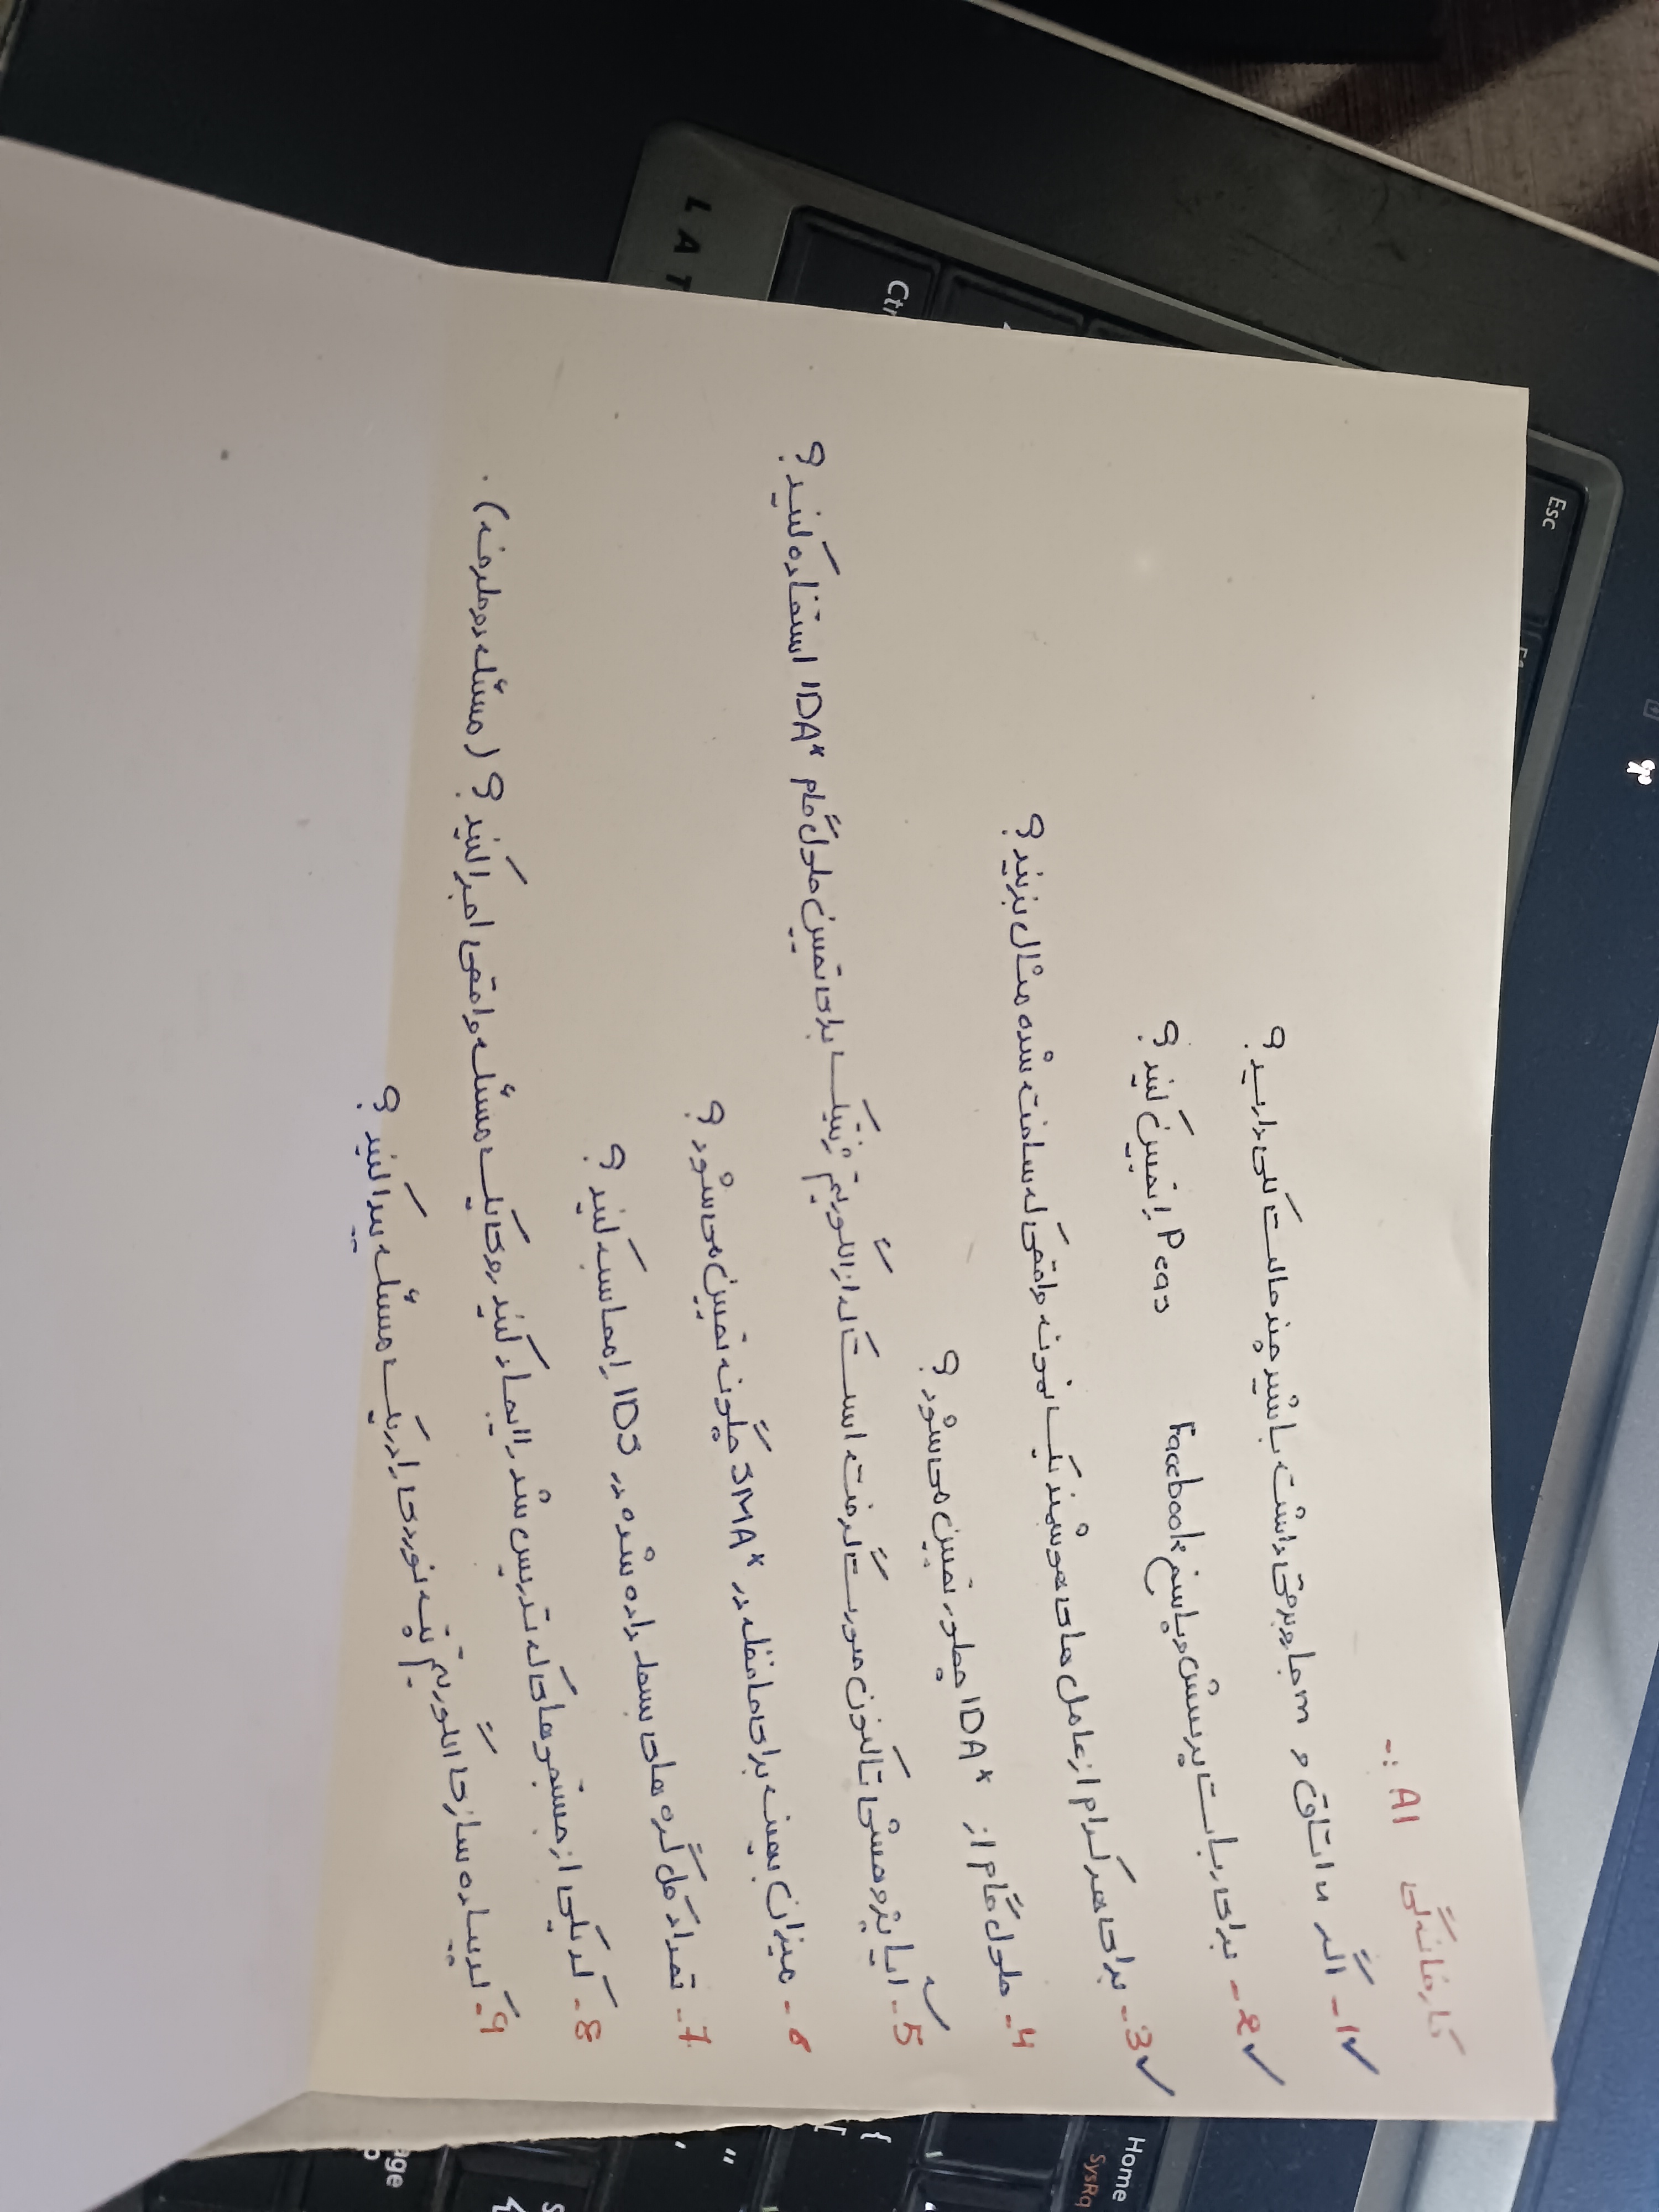 Esc
کارخانه‌گی AI :-
1- اگر n اتاق و m جاروبرقی داشته باشید چند حالت کلی دارید؟
2- برای ربات پرسش و پاسخ Facebook Peas را تعیین کنید؟
3- برای هر کدام از عامل های هوشمند یک نمونه واقعی که ساخته شده مثال بزنید؟
4- طول گام از IDA* چطور تعیین می شود؟
5- آیا پژوهشی تاکنون صورت گرفته است که از الگوریتم ژنتیک برای تعیین طول گام IDA* استفاده کنید؟
6- میزان بهینه برای حافظه در SMA* چگونه تعیین می شود؟
7- تعداد کل گره های بسط داده شده در IDS را محاسبه کنید؟
8- کد یکی از جستجو های که تدریس شد را ایجاد کنید روی یک مسئله واقعی اجرا کنید؟ (مسئله دو طرفه).
9- کد پیاده سازی الگوریتم تپه نوردی را در یک مسئله پیدا کنید؟
Home
SysRq
Ctr
LAT